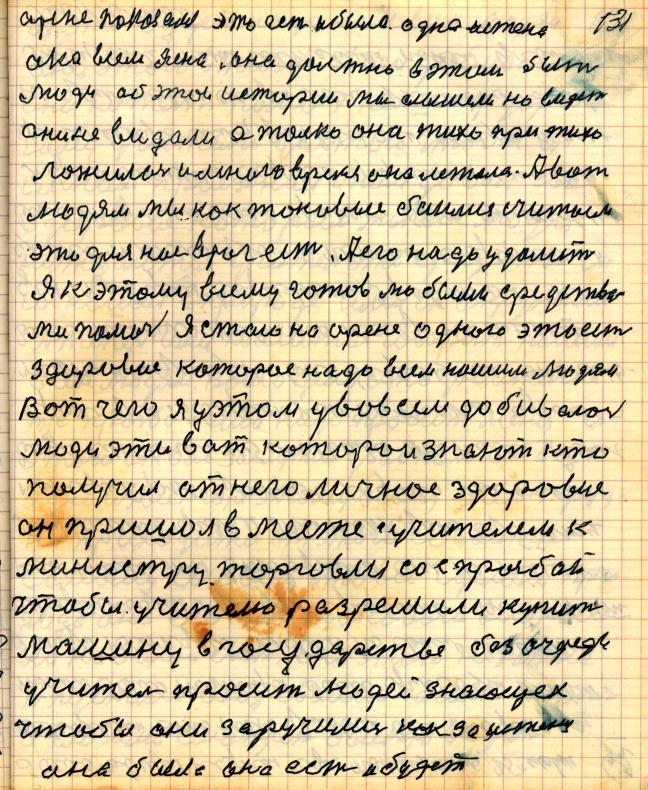 131
арене показал это ест и была одна истена
она всем ясна, она должно в этим были
люди об этой истории мы слышели но видет
они не видали а толко она тихо при тихо
ложилас и много время она летала. А вот
людям мы как таковые боимся считаем
это для нас враг ест. Него надо удалит
Я к этому всему готов
мы помоч Я стаю на арене одного это ест
здоровие которое надо всем нашим людям
Вот чего я у этом у во всем добивалса
люди эти ват которои знают кто
получил от него личное здоровие
он пришол в месте с учителем к
министру торговли со спрозбой
чтобы учителю разрешили купит
машину в государстве без очреди
учител просит людей знающех
чтобы они заручилис как за истену
она была она ест и будет